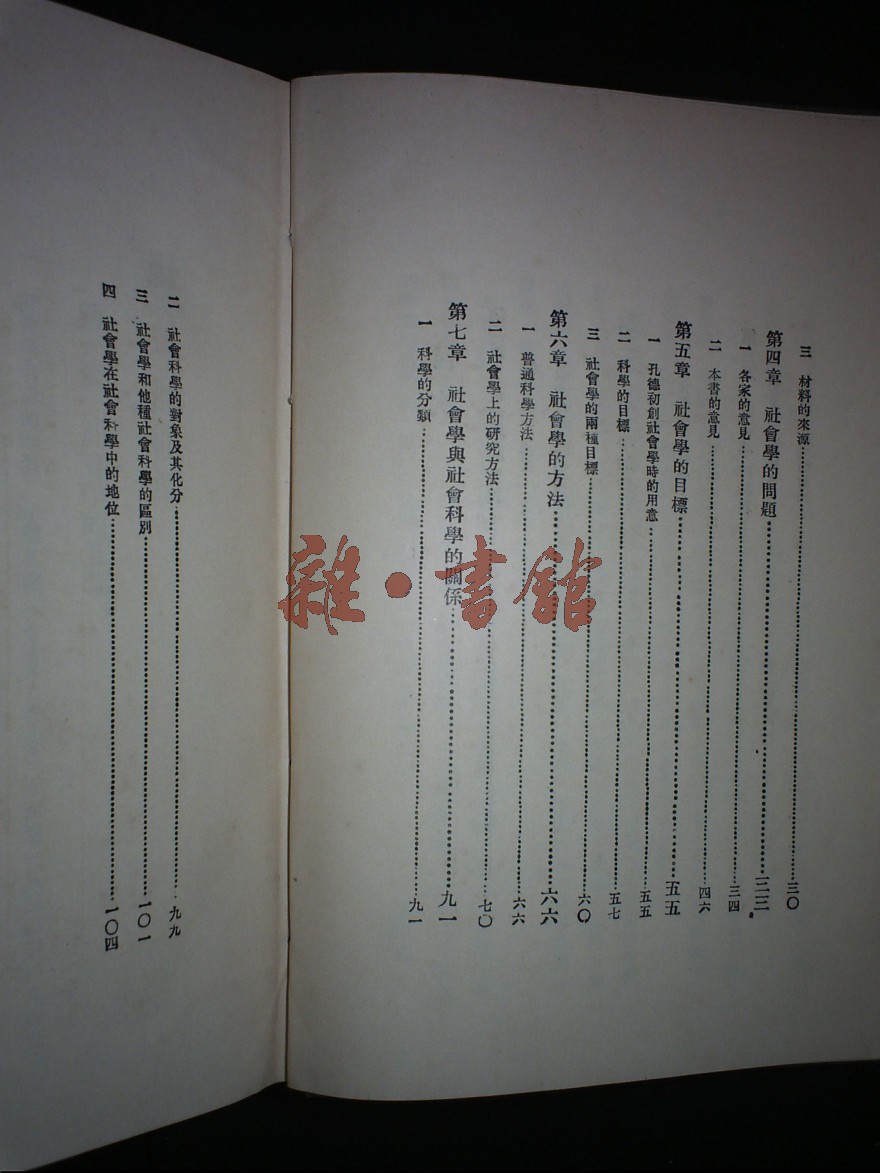 三 材料的來源……三〇
第四章 社會學的問題……三三
一 各家的意見……三四
二 本書的意見……四六
第五章 社會學的目標……五五
一 孔德初創社會學時的用意……五五
二 科學的目標……五七
三 社會學的兩種目標……六〇
第六章 社會學的方法……六六
一 普通科學方法……六六
二 社會學上的研究方法……七〇
第七章 社會學與社會科學的關係……九一
一 科學的分類……九一
二 社會科學的對象及其化分……九九
三 社會學和他種社會科學的區別……一〇一
四 社會學在社會科學中的地位……一〇四
雜·書館